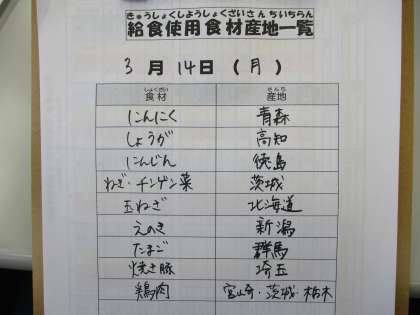 きゅうしょくしようしょくざいさんちいちらん
給食使用食材産地一覧
3月14日(月)
しょくざい さんち
食材 産地
にんにく 青森
しょうが 高知
にんじん 徳島
ねぎ・チンゲン菜 茨城
玉ねぎ 北海道
えのき 新潟
たまご 群馬
焼き豚 埼玉
鶏肉 宮崎・茨城・栃木